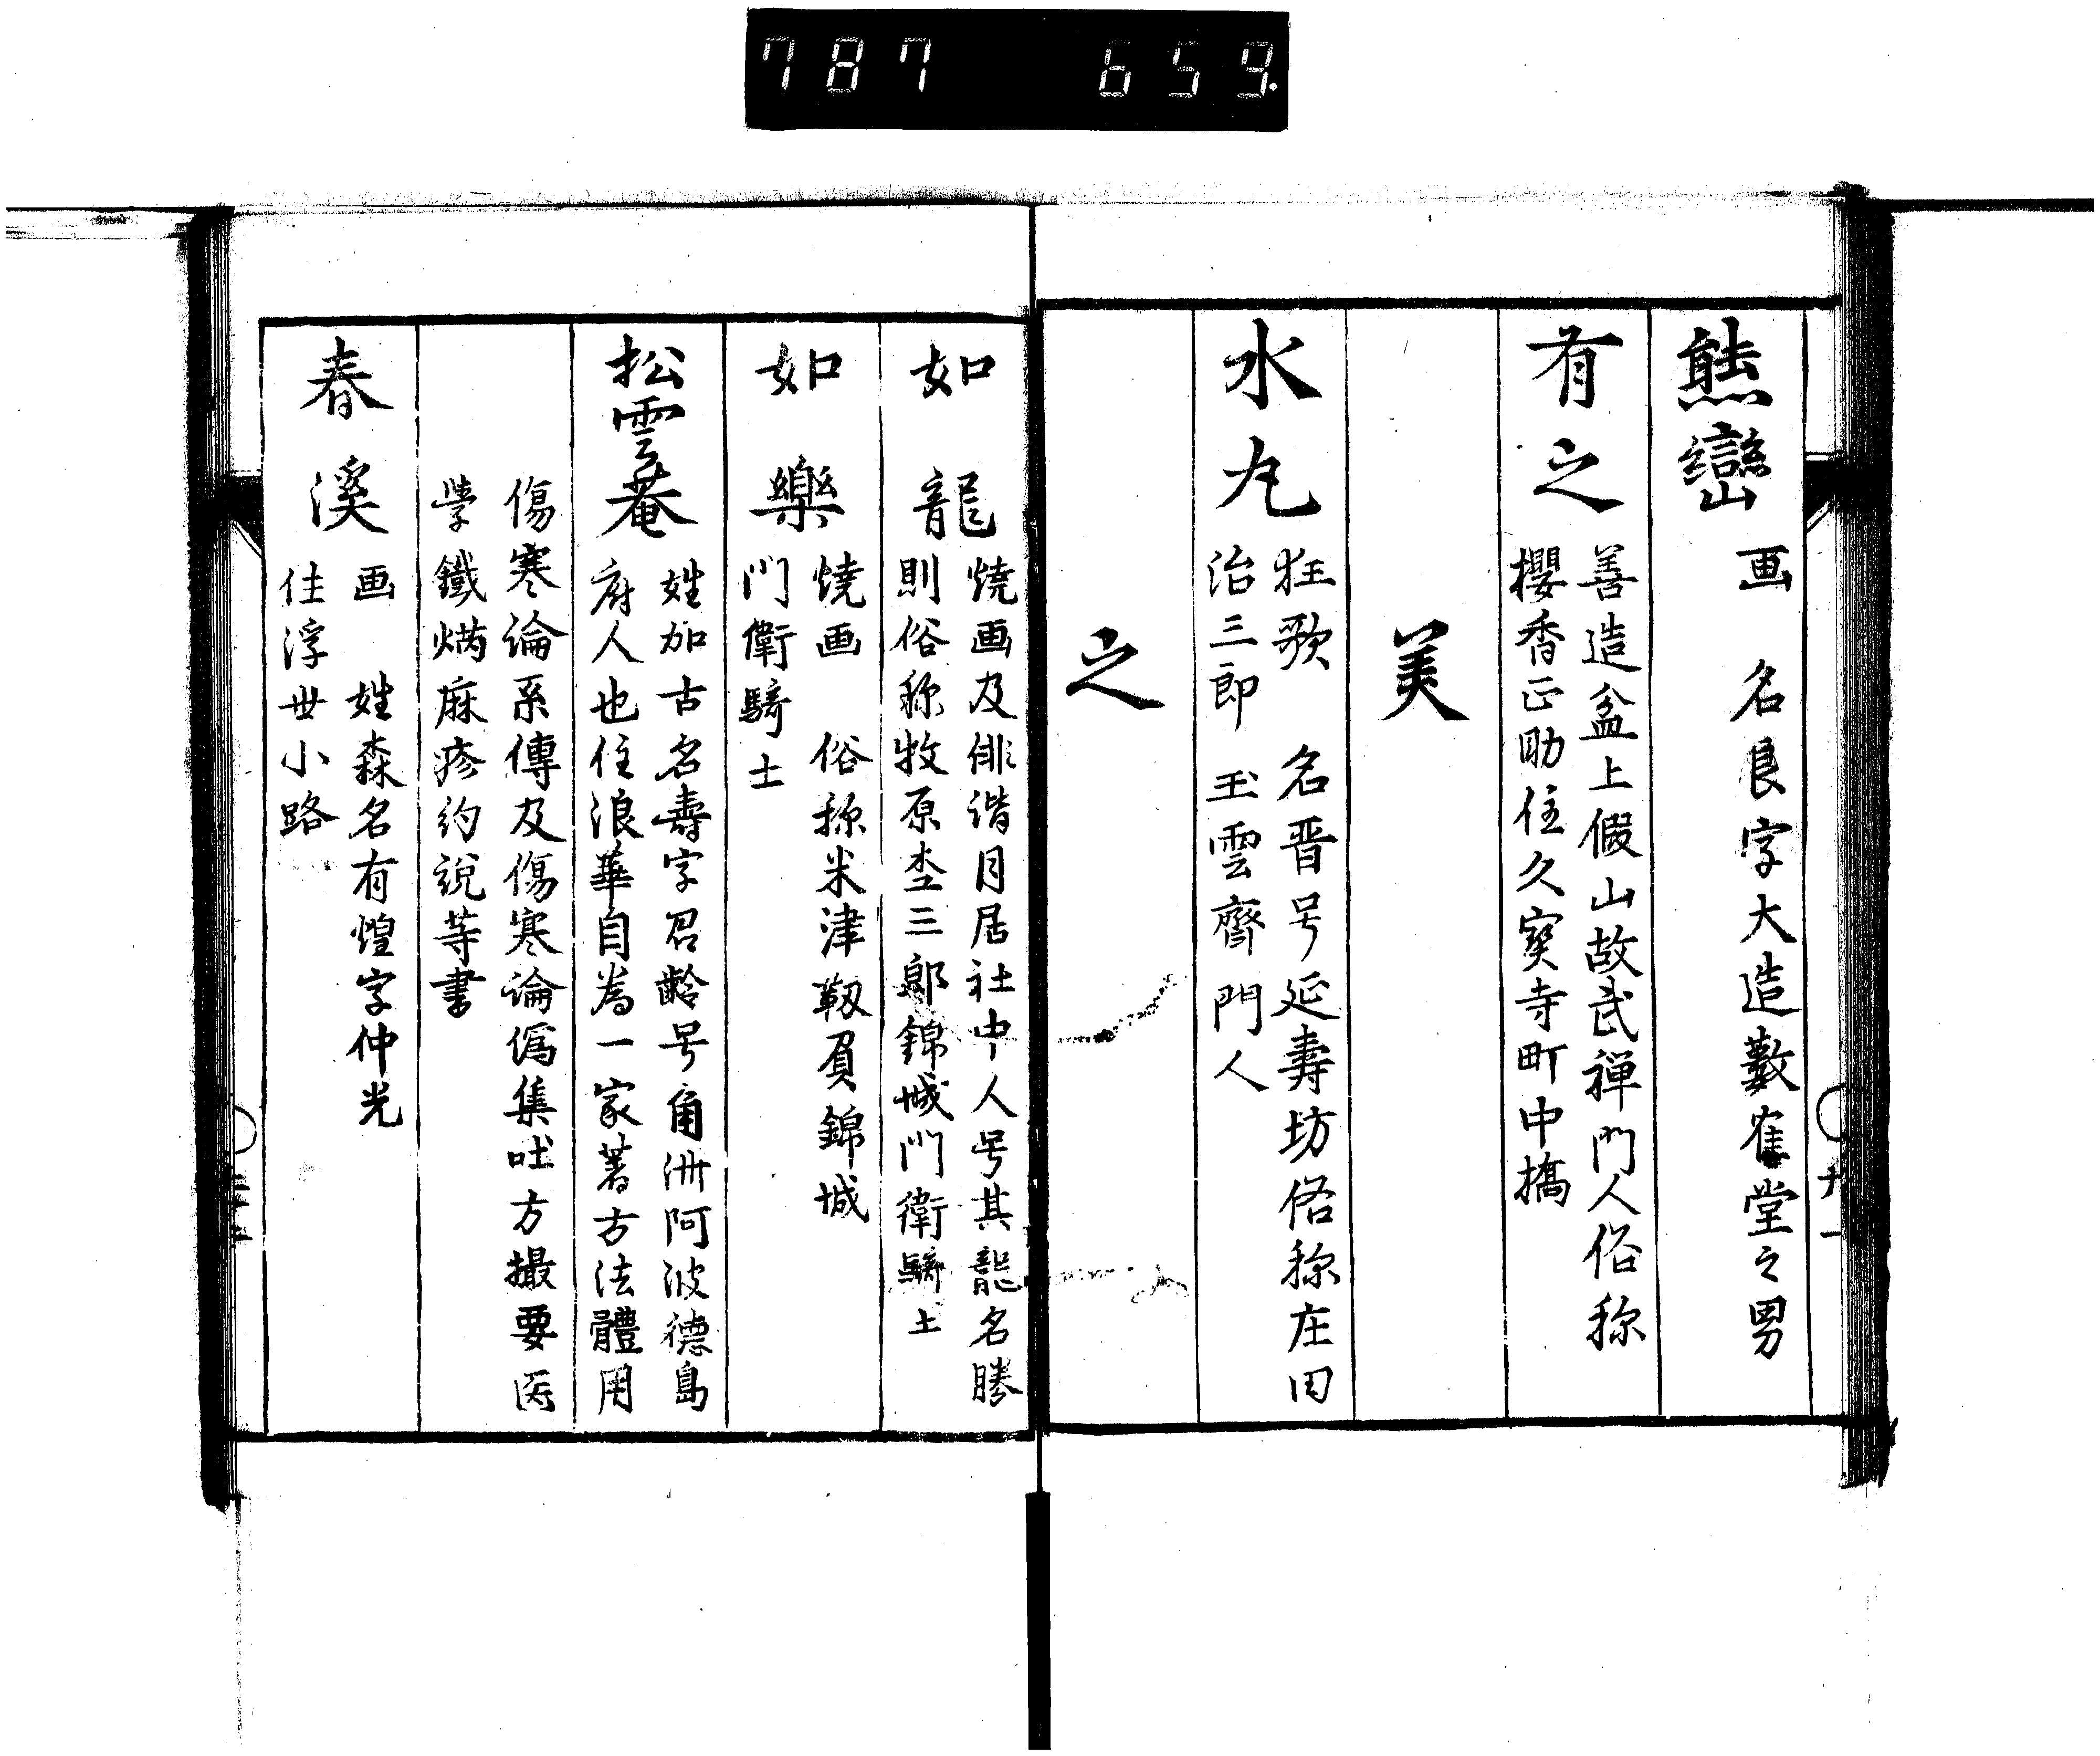 787 659.
熊巒
画 名良字大造藪雀堂之男
有之
善造盆上假山故武禅門人俗称
櫻香正助住久寳寺町中橋
美
水丸
狂歌 名晋号延壽坊俗称庄田
治三郎 玉雲齋門人
之
九一
如龍
燒画及俳諧月居社中人号其龍名勝
則俗称牧原杢三郎錦城門衛騎士
如樂
燒画 俗称米津靱負錦城
門衛騎士
松雲菴
姓加古名壽字君齡号角洲阿波德島
府人也住浪華自為一家著方法體用
傷寒論系傳及傷寒論僞集吐方撮要医
学鐵炳麻疹約説等書
春溪
画 姓森名有煌字仲光
住浮世小路